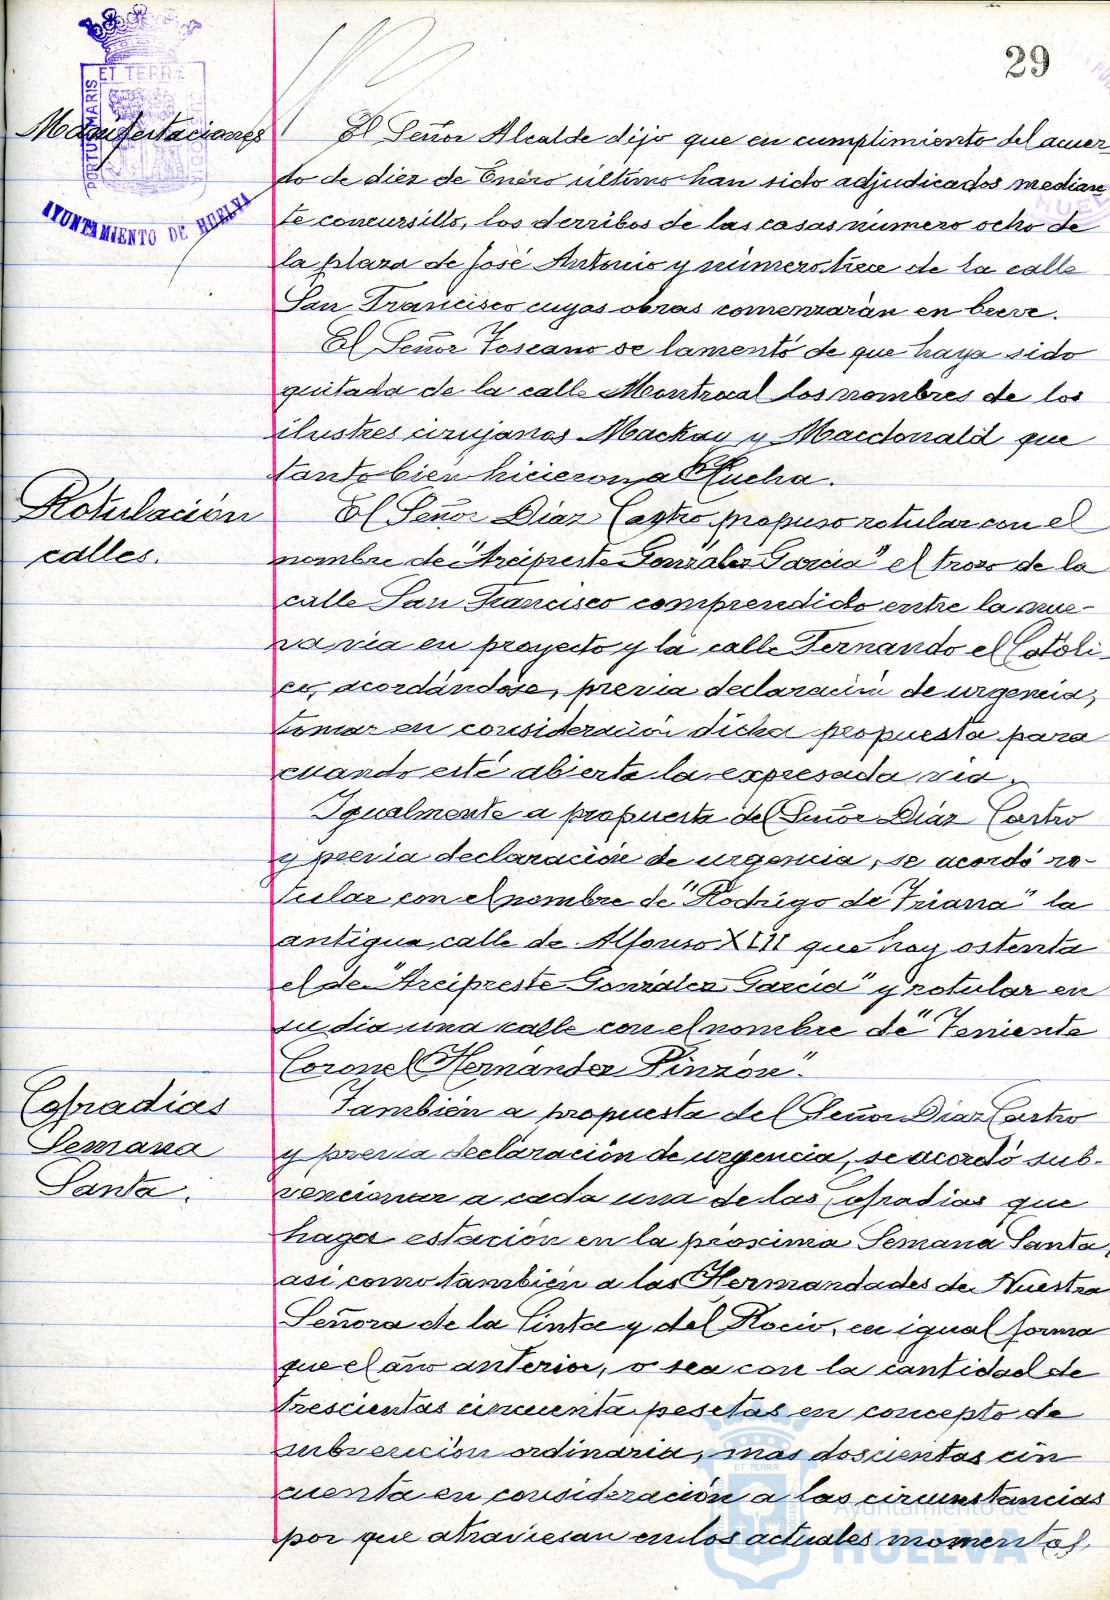 29
PORTUS MARIS
ET TERRE
AYUNTAMIENTO DE HUELVA
Manifestaciones
El Señor Alcalde dijo que en cumplimiento del acuer-
do de diez de Enero último han sido adjudicados median-
te concursillo, los derribos de las casas número ocho de
la plaza de José Antonio y número trece de la calle
San Francisco cuyas obras comenzarán en breve.
El Señor Toscano se lamentó de que haya sido
quitada de la calle los nombres de los
ilustres cirujanos Mackay y Macdonald que
tanto bien hicieron a
Rotulación
calles.
El Señor Díaz Castro propuso rotular con el
nombre de "Arcipreste González García" el trozo de la
calle San Francisco comprendido entre la nue-
va via en proyecto y la calle Fernando el Católi-
co, acordándose, previa declaración de urgencia,
tomar en consideración dicha propuesta para
cuando esté abierta la expresada via.
Igualmente a propuesta del Señor Díaz Castro
y previa declaración de urgencia, se acordó ro-
tular con el nombre de "Rodrigo de Triana" la
antigua calle de Alfonso XIII que hoy ostenta
el de "Arcipreste González García" y rotular en
su dia una calle con el nombre de "Teniente
Coronel Hernández Pinzón".
Cofradias
Semana
Santa.
También a propuesta del Señor Díaz Castro
y previa declaración de urgencia, se acordó sub-
vencionar a cada una de las Cofradias que
haga estación en la próxima Semana Santa,
asi como también a las Hermandades de Nuestra
Señora de la Cinta y del Rocio, en igual forma
que el año anterior, o sea con la cantidad de
trescientas cincuenta pesetas en concepto de
subvención ordinaria, mas doscientas cin
cuenta en consideración a las circunstancias
por que atraviesan en los actuales momentos,
Ayuntamiento de
HUELVA